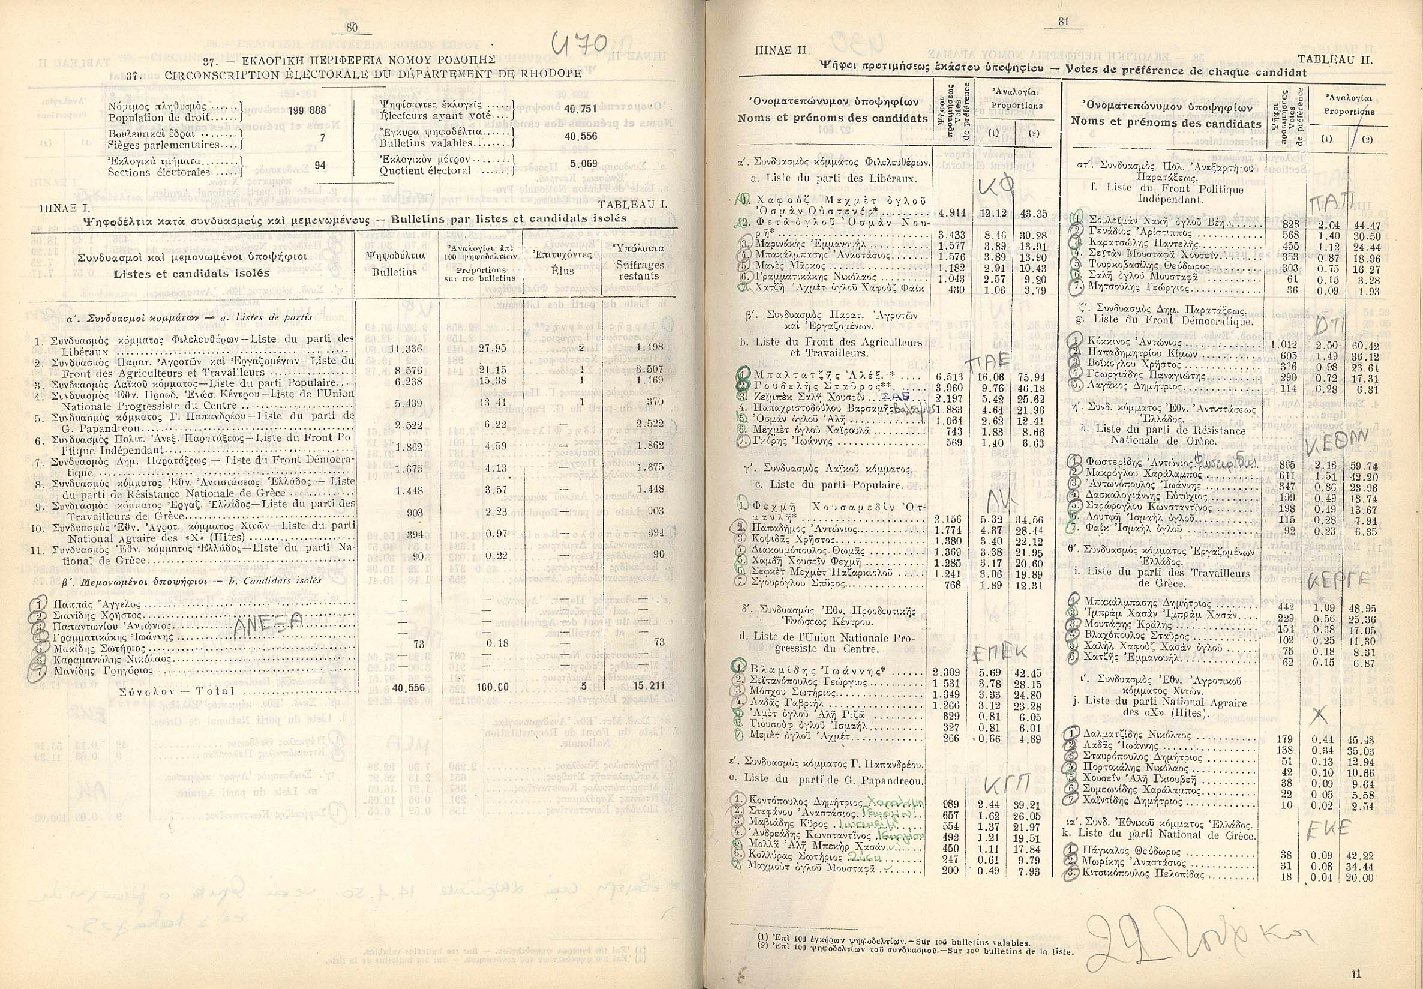 80
470
37. — ΕΚΛΟΓΙΚΗ ΠΕΡΙΦΕΡΕΙΑ ΝΟΜΟΥ ΡΟΔΟΠΗΣ
37. CIRCONSCRIPTION ÉLECTORALE DU DÉPARTEMENT DE RHODOPE
Νόμιμος πληθυσμός
Population de droit 199 888
Βουλευτικαὶ ἕδραι
Sièges parlementaires 7
Ἐκλογικὰ τμήματα
Sections électorales 94
Ψηφίσαντες ἐκλογεῖς
Électeurs ayant voté 40,751
Ἔγκυρα ψηφοδέλτια
Bulletins valables 40,556
Ἐκλογικὸν μέτρον
Quotient électoral 5,069
ΠΙΝΑΞ I. TABLEAU I.
Ψηφοδέλτια κατὰ συνδυασμοὺς καὶ μεμονωμένους — Bulletins par listes et candidats isolés
Συνδυασμοὶ καὶ μεμονωμένοι ὑποψήφιοι
Listes et candidats isolés
Ψηφοδέλτια
Bulletins
Ἀναλογίαι ἐπὶ 100 ψηφοδελτίων
Proportions sur 100 bulletins
Ἐπιτυχόντες
Élus
Ὑπόλοιπα
Suffrages restants
α΄. Συνδυασμοὶ κομμάτων — a. Listes de partis
1. Συνδυασμὸς κόμματος Φιλελευθέρων—Liste du parti des
Libéraux 11,336 27.95 2 1.198
2. Συνδυασμὸς Παρατ. Ἀγροτῶν καὶ Ἐργαζομένων—Liste du
Front des Agriculteurs et Travailleurs 8,576 21.15 1 3.507
3. Συνδυασμὸς Λαϊκοῦ κόμματος—Liste du parti Populaire 6.238 15.38 1 1.169
4. Συνδυασμὸς Ἐθν. Προοδ. Ἑνώσ. Κέντρου—Liste de l'Union
Nationale Progressiste du Centre 5.439 13.41 1 370
5. Συνδυασμὸς κόμματος Γ. Παπανδρέου—Liste du parti de
G. Papandreou 2.522 6.22 — 2.522
6. Συνδυασμὸς Πολιτ. Ἀνεξ. Παρατάξεως—Liste du Front Po-
litique Indépendant 1.862 4.59 — 1.862
7. Συνδυασμὸς Δημ. Παρατάξεως — Liste du Front Démocra-
tique 1.675 4.13 — 1.675
8. Συνδυασμὸς κόμματος Ἐθν. Ἀντιστάσεως Ἑλλάδος — Liste
du parti de Résistance Nationale de Grèce 1.448 3.57 — 1.448
9. Συνδυασμὸς κόμματος Ἐργαζ. Ἑλλάδος—Liste du parti des
Travailleurs de Grèce 903 2.23 — 903
10. Συνδυασμὸς Ἐθν. Ἀγροτ. κόμματος Χιτῶν—Liste du parti
National Agraire des «X» (Hites) 394 0.97 — 394
11. Συνδυασμὸς Ἐθν. κόμματος Ἑλλάδος—Liste du parti Na-
tional de Grèce 90 0.22 — 90
β΄. Μεμονωμένοι ὑποψήφιοι — b. Candidats isolés
Παππᾶς Ἄγγελος
Σιανίδης Χρῆστος
Παπαντωνίου Ἀντώνιος
Γραμματικάκης Ἰωάννης
Μακίδης Σωτήριος 73 0.18 — 73
Καραμανώλης Νικόλαος
Μανίδης Γρηγόριος
ΑΝΕΞΑ
Σύνολον — Total 40,556 100.00 5 15.211
81
ΠΙΝΑΞ II. TABLEAU II.
Ψῆφοι προτιμήσεως ἑκάστου ὑποψηφίου — Votes de préférence de chaque candidat
Ὀνοματεπώνυμον ὑποψηφίων
Noms et prénoms des candidats
Ψῆφοι προτιμήσεως
Votes de préférence
Ἀναλογίαι
Proportions
(1) (2)
α΄. Συνδυασμὸς κόμματος Φιλελευθέρων.
a. Liste du parti des Libéraux.
ΚΦ
Χαφοὺζ Μεχμὲτ ὀγλοῦ
Ὀσμὰν Οὐστενές* 4.914 12.12 43.35
Φετὰ ὀγλοῦ Ὀσμὰν Νου-
ρῆ* 3.433 8.46 30.28
Μαρινάκης Ἐμμανουὴλ 1.577 3.89 13.91
Μπακάλμπασης Ἀναστάσιος 1.576 3.89 13.90
Μάνος Μᾶρκος 1.182 2.91 10.43
Γραμματικάκης Νικόλαος 1.043 2.57 9.20
Χατζῆ Ἀχμὲτ ὀγλοῦ Χαφοὺζ Φαὶκ 430 1.06 3.79
β΄. Συνδυασμὸς Παρατ. Ἀγροτῶν
καὶ Ἐργαζομένων.
b. Liste du Front des Agriculteurs
et Travailleurs.
ΠΑΕ
Μπαλτατζῆς Ἀλέξ.* 6.513 16.06 75.94
Γουδελῆς Σταῦρος** 3.960 9.76 46.18
Ζεϊμπὲκ Σαλῆ Χουσεῒν 2.197 5.42 25.62
Παπαχριστοδούλου Βαρσαμῆς 1.883 4.64 21.96
Ὀσμὰν ὀγλοῦ Ἀλῆ 1.064 2.62 12.41
Μεχμὲτ ὀγλοῦ Χαϊρουλᾶ 743 1.83 8.66
Γλόρης Ἰωάννης 569 1.40 6.63
γ΄. Συνδυασμὸς Λαϊκοῦ κόμματος.
c. Liste du parti Populaire.
ΛΚ
Φεχμὴ Χουσαμεδὶν Ὀτ-
μανλῆ* 2.156 5.32 34.56
Παπαδῆμος Ἀντώνιος 1.774 4.37 28.44
Κοψιδᾶς Χρῆστος 1.380 3.40 22.12
Διακουμόπουλος Θωμᾶς 1.369 3.38 21.95
Χαμδῆ Χουσεῒν Φεχμῆ 1.285 3.17 20.60
Σεφκὲτ Μεχμὲτ Παζαρκιολοῦ 1.241 3.06 19.89
Σγουρόγλου Σπῦρος 768 1.89 12.31
δ΄. Συνδυασμὸς Ἐθν. Προοδευτικῆς
Ἑνώσεως Κέντρου.
d. Liste de l'Union Nationale Pro-
gressiste du Centre.
ΕΠΕΚ
Βλαμίδης Ἰωάννης* 2.309 5.69 42.45
Στεπανόπουλος Γεώργιος 1.531 3.78 28.15
Μόσχου Σωτήριος 1.349 3.33 24.80
Λαδᾶς Γαβριὴλ 1.266 3.12 23.28
Ἀμὲτ ὀγλοῦ Ἀλῆ Ριζᾶ 329 0.81 6.05
Γιουσοὺφ ὀγλοῦ Ἰσμαὴλ 327 0.81 6.01
Μεμὲτ ὀγλοῦ Ἀχμὲτ 266 0.66 4.89
ε΄. Συνδυασμὸς κόμματος Γ. Παπανδρέου.
e. Liste du parti de G. Papandreou.
ΚΓΠ
Κοντόπουλος Δημήτριος 989 2.44 39.21
Στεφάνου Ἀναστάσιος 657 1.62 26.05
Μαβιάδης Κῦρος 554 1.37 21.97
Ἀνδρεάδης Κωνσταντῖνος 492 1.21 19.51
Μολλᾶ Ἀλῆ Μπεκὴρ Χασὰν 450 1.11 17.84
Κολλύρας Σωτήριος 247 0.61 9.79
Μαχμοὺτ ὀγλοῦ Μουσταφᾶ 200 0.49 7.93
(1) Ἐπὶ 100 ἐγκύρων ψηφοδελτίων.—Sur 100 bulletins valables.
(2) Ἐπὶ 100 ψηφοδελτίων τοῦ συνδυασμοῦ.—Sur 100 bulletins de la liste.
Ὀνοματεπώνυμον ὑποψηφίων
Noms et prénoms des candidats
Ψῆφοι προτιμήσεως
Votes de préférence
Ἀναλογίαι
Proportions
(1) (2)
στ΄. Συνδυασμὸς Πολ. Ἀνεξαρτήτου
Παρατάξεως.
f. Liste du Front Politique
Indépendant.
ΠΑΠ
Σουλεϊμὰν Χακῆ ὀγλοῦ Βέη 828 2.04 44.47
Γενάδιος Ἀρίστιππος 568 1.40 30.50
Καρατσώλης Παντελῆς 455 1.12 24.44
Σεϊτὰν Μουσταφᾶ Χουσεῒν 353 0.87 18.96
Πυρκοβασίλης Θεόδωρος 303 0.75 16.27
Σαλῆ ὀγλοῦ Μουσταφᾶ 61 0.15 3.28
Μητσούλης Γεώργιος 36 0.09 1.93
ζ΄. Συνδυασμὸς Δημ. Παρατάξεως.
g. Liste du Front Démocratique.
ΔΠ
Κόκκινος Ἀντώνιος 1.012 2.50 60.42
Παπαδημητρίου Κίμων 605 1.49 36.12
Βοΐκογλου Χρῆστος 396 0.98 23.61
Γεωργιάδης Παναγιώτης 290 0.72 17.31
Λαγάκος Δημήτριος 114 0.28 6.81
η΄. Συνδ. κόμματος Ἐθν. Ἀντιστάσεως
Ἑλλάδος.
h. Liste du parti de Résistance
Nationale de Grèce.
ΚΕΘΑΝ
Φωστερίδης Ἀντώνιος 865 2.16 59.74
Μαυρόγλου Χαράλαμπος 611 1.51 42.20
Ἀντωνόπουλος Ἰωάννης 347 0.86 23.96
Δασκαλογιάννης Εὐτύχιος 199 0.49 13.74
Σαράφογλου Κωνσταντῖνος 198 0.49 13.67
Λουτφῆ Ἰσμαὴλ ὀγλοῦ 115 0.28 7.94
Φαὶκ Ἰσμαὴλ ὀγλοῦ 92 0.23 6.35
θ΄. Συνδυασμὸς κόμματος Ἐργαζομένων
Ἑλλάδος.
i. Liste du parti des Travailleurs
de Grèce.
ΚΕΡΓΕ
Μπακάλμπασης Δημήτριος 442 1.09 48.95
Ἰμπρὰμ Χασὰν Ἰμπρὰμ Χασὰν 229 0.56 25.36
Μουτάσης Κράλης 154 0.38 17.05
Βλαχόπουλος Σταῦρος 102 0.25 11.30
Χαλὴλ Χαφοὺζ Χασὰν ὀγλοῦ 75 0.18 8.31
Χατζῆς Ἐμμανουὴλ 62 0.15 6.87
ι΄. Συνδυασμὸς Ἐθν. Ἀγροτικοῦ
κόμματος Χιτῶν.
j. Liste du parti National Agraire
des «X» (Hites).
Χ
Δαλματζίδης Νικόλαος 179 0.44 45.43
Λαδᾶς Ἰωάννης 138 0.34 35.03
Σταυρόπουλος Δημήτριος 51 0.13 12.94
Πορτοκάλης Νικόλαος 42 0.10 10.66
Χουσεῒν Ἀλῆ Γκουβεζῆ 38 0.09 9.64
Συμεωνίδης Χαράλαμπος 22 0.05 5.58
Χαϊντίδης Δημήτριος 10 0.02 2.54
ια΄. Συνδ. Ἐθνικοῦ κόμματος Ἑλλάδος.
k. Liste du parti National de Grèce.
ΕΚΕ
Πάγκαλος Θεόδωρος 38 0.09 42.22
Μωρίκης Ἀναστάσιος 31 0.08 34.44
Κιτσικόπουλος Πελοπίδας 18 0.04 20.00
22 Τούρκοι
11